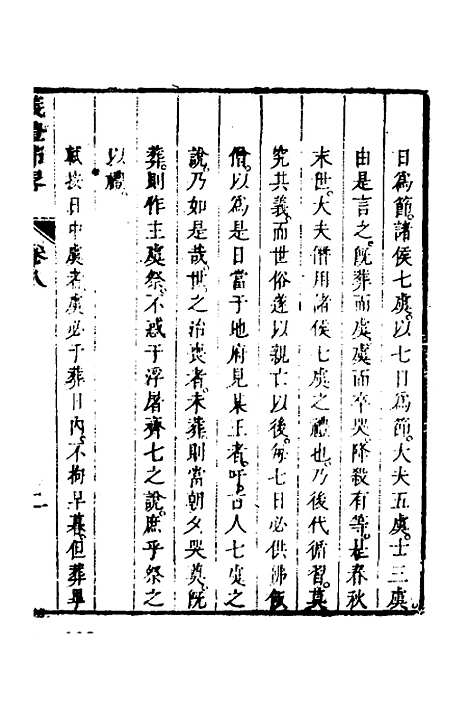 日爲節。諸侯七虞。以七日爲節。大夫五虞。士三虞。
由是言之。旣葬而虞。虞而卒哭。降殺有等。是春秋
末世。大夫僭用諸侯七虞之禮也。乃後代循習。莫
究其義。而世俗遂以親亡以後。每七日必供佛飯
僧。以為是日當于地府見某王者。吁。古人七虞之
說。乃如是哉。世之治喪者。未葬則當朝夕哭奠。旣
葬則作主虞祭。不惑于浮屠齊七之說。庶乎祭之
以禮。
軾按日中虞者。虞必于葬日內。不拘早暮。但葬畢
儀禮節畧
卷八
二